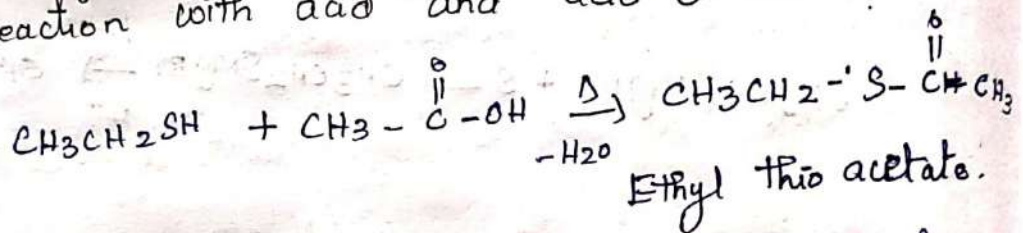 eaction with and
O O
|| ||
CH3CH2SH + CH3 - C - OH Δ→ CH3CH2 - S - C CH3
-H2O
Ethyl thio acetate.